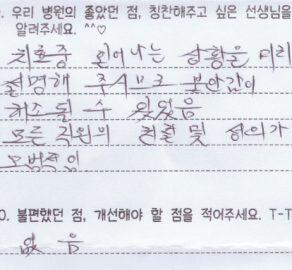 . 우리 병원의 좋았던 점, 칭찬해주고 싶은 선생님을
알려주세요. ^^♡
치료중 일어나는 상황을 미리
설명해 주시므로 불안감이
해소될 수 있었음
모든 직원의 친절 및 성의가
모범적임
0. 불편했던 점, 개선해야 할 점을 적어주세요. T-T
없음